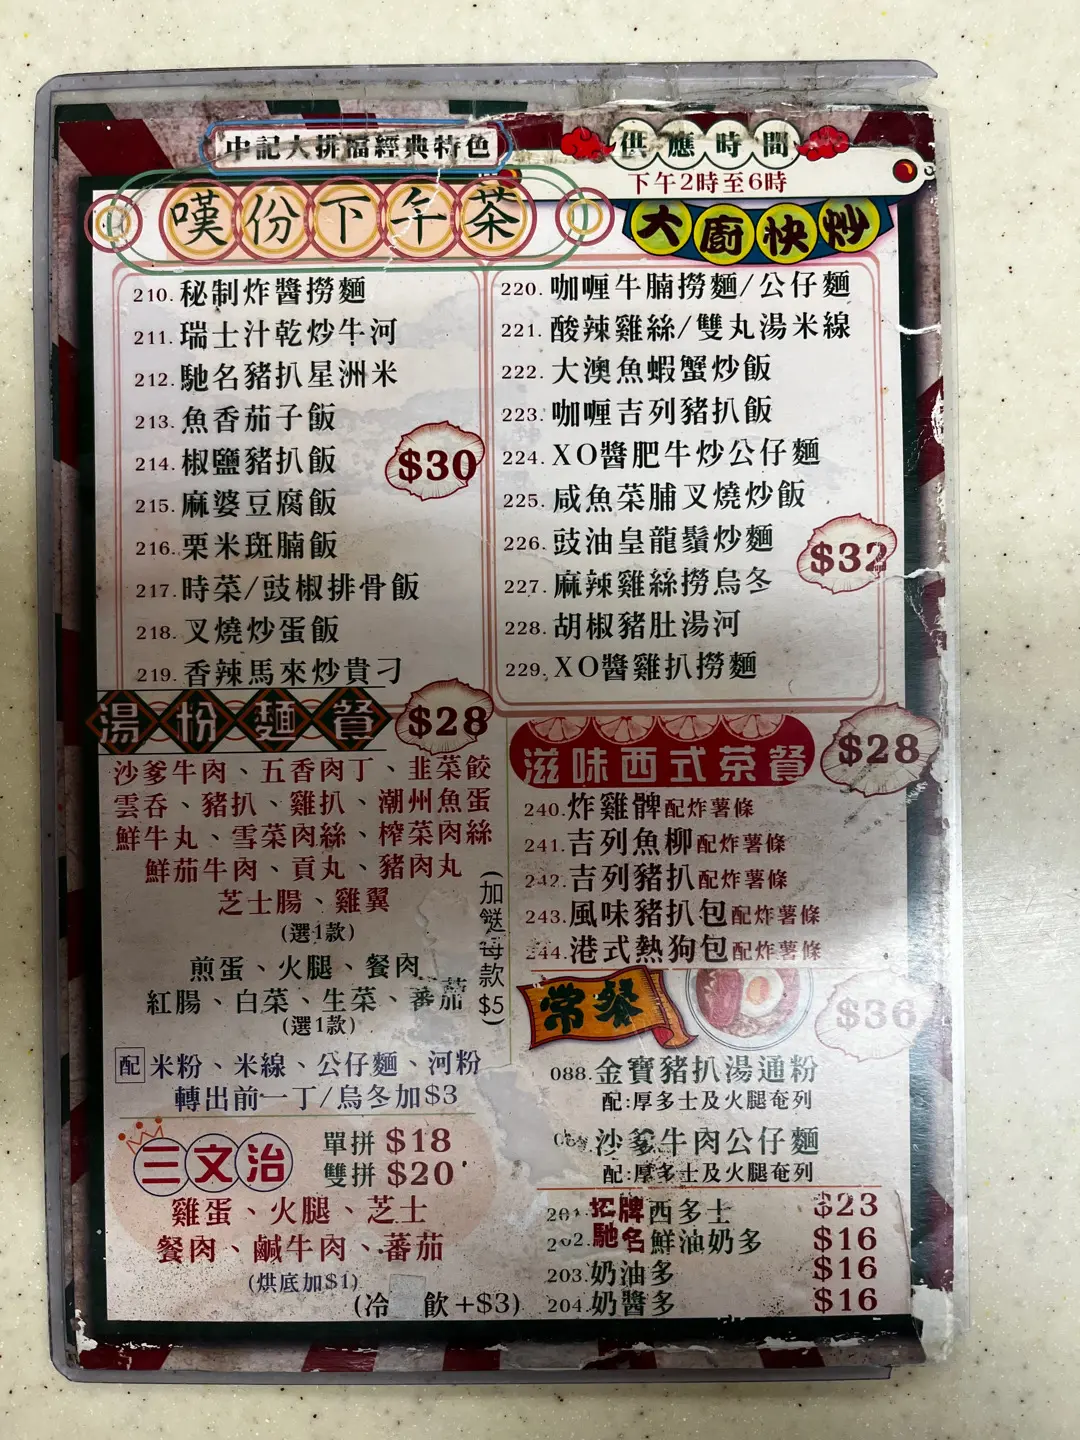 中記大排檔經典特色
供應時間
下午2時至6時
嘆份下午茶
大廚快炒
210.秘制炸醬撈麵
211.瑞士汁乾炒牛河
212.馳名豬扒星洲米
213.魚香茄子飯
214.椒鹽豬扒飯
215.麻婆豆腐飯
216.栗米斑腩飯
217.時菜/豉椒排骨飯
218.叉燒炒蛋飯
219.香辣馬來炒貴刁
$30
220.咖喱牛腩撈麵/公仔麵
221.酸辣雞絲/雙丸湯米線
222.大澳魚蝦蟹炒飯
223.咖喱吉列豬扒飯
224.XO醬肥牛炒公仔麵
225.咸魚菜脯叉燒炒飯
226.豉油皇龍鬚炒麵
227.麻辣雞絲撈烏冬
228.胡椒豬肚湯河
229.XO醬雞扒撈麵
$32
湯粉麵餐
$28
沙爹牛肉、五香肉丁、韭菜餃
雲吞、豬扒、雞扒、潮州魚蛋
鮮牛丸、雪菜肉絲、榨菜肉絲
鮮茄牛肉、貢丸、豬肉丸
芝士腸、雞翼
(選1款)
煎蛋、火腿、餐肉
紅腸、白菜、生菜、蕃茄
(選1款)
(加餸每款$5)
配 米粉、米線、公仔麵、河粉
轉出前一丁/烏冬加$3
三文治
單拼 $18
雙拼 $20
雞蛋、火腿、芝士
餐肉、鹹牛肉、蕃茄
(烘底加$1)
(冷 飲+$3)
滋味西式茶餐
$28
240.炸雞髀配炸薯條
241.吉列魚柳配炸薯條
242.吉列豬扒配炸薯條
243.風味豬扒包配炸薯條
244.港式熱狗包配炸薯條
常餐
$36
088.金寶豬扒湯通粉
配:厚多士及火腿奄列
沙爹牛肉公仔麵
配:厚多士及火腿奄列
201.招牌西多士 $23
202.馳名鮮油奶多 $16
203.奶油多 $16
204.奶醬多 $16